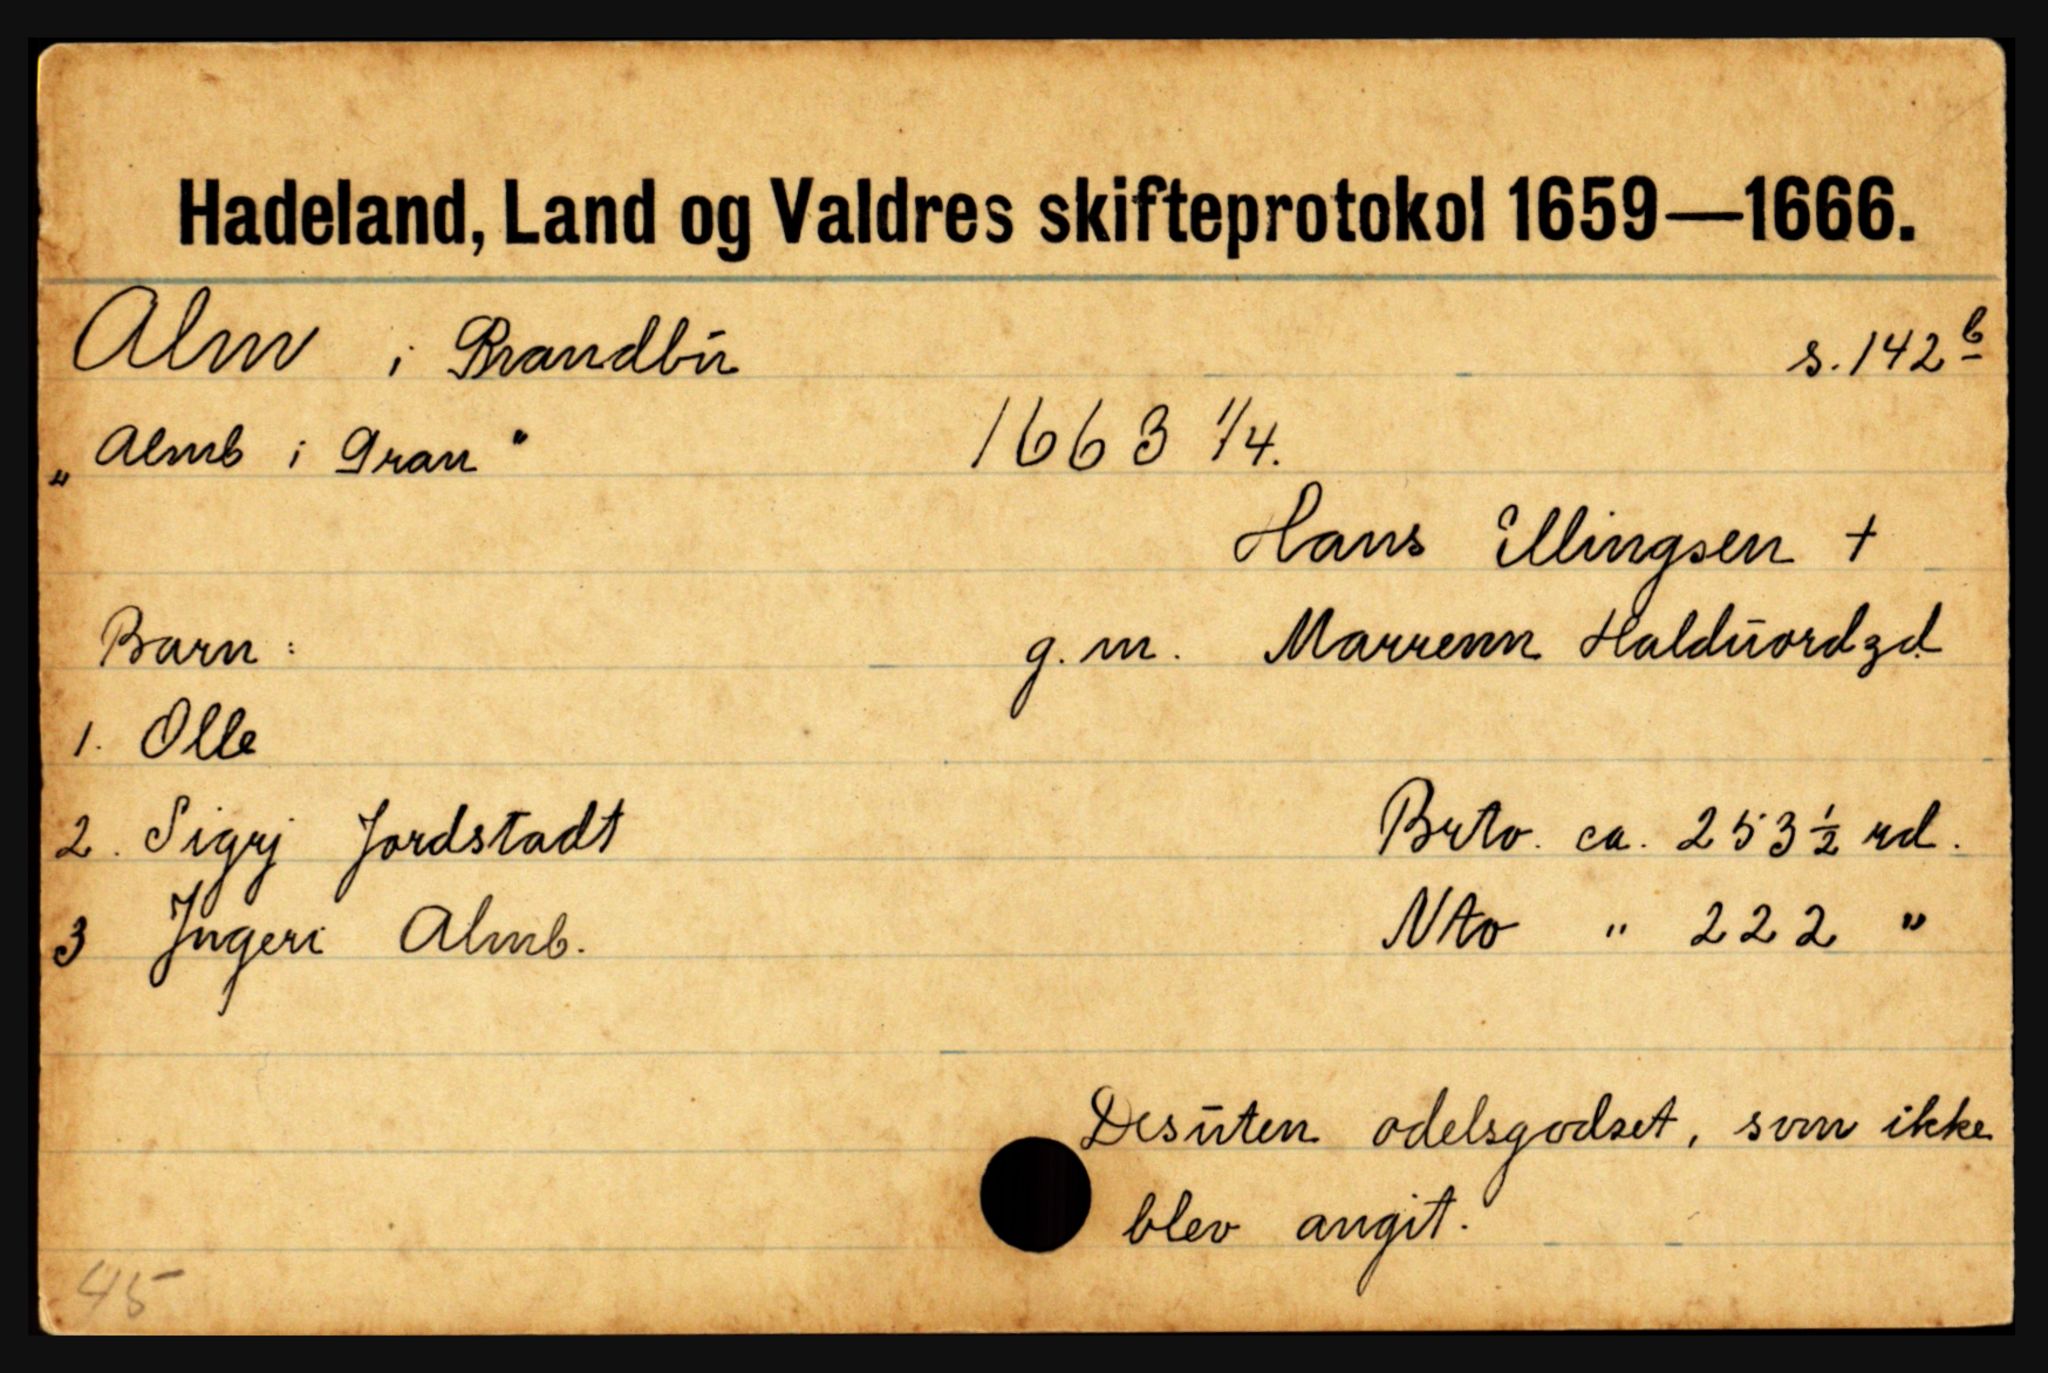 Hadeland, Land og Valdres skifteprotokol 1659—1666.
Alm i Brandbu s. 142 b
„Almb i Gran" 1663 1/4.
Hans Ellingsen +
Barn: g. m. Marrenn Halduordzd.
1. Olle
2. Sigrj Jordstadt Brto. ca. 253 ½ rd.
3 Jngeri Almb. Nto " 222 "
Desuten odelsgodset, som ikke
blev angit.
45